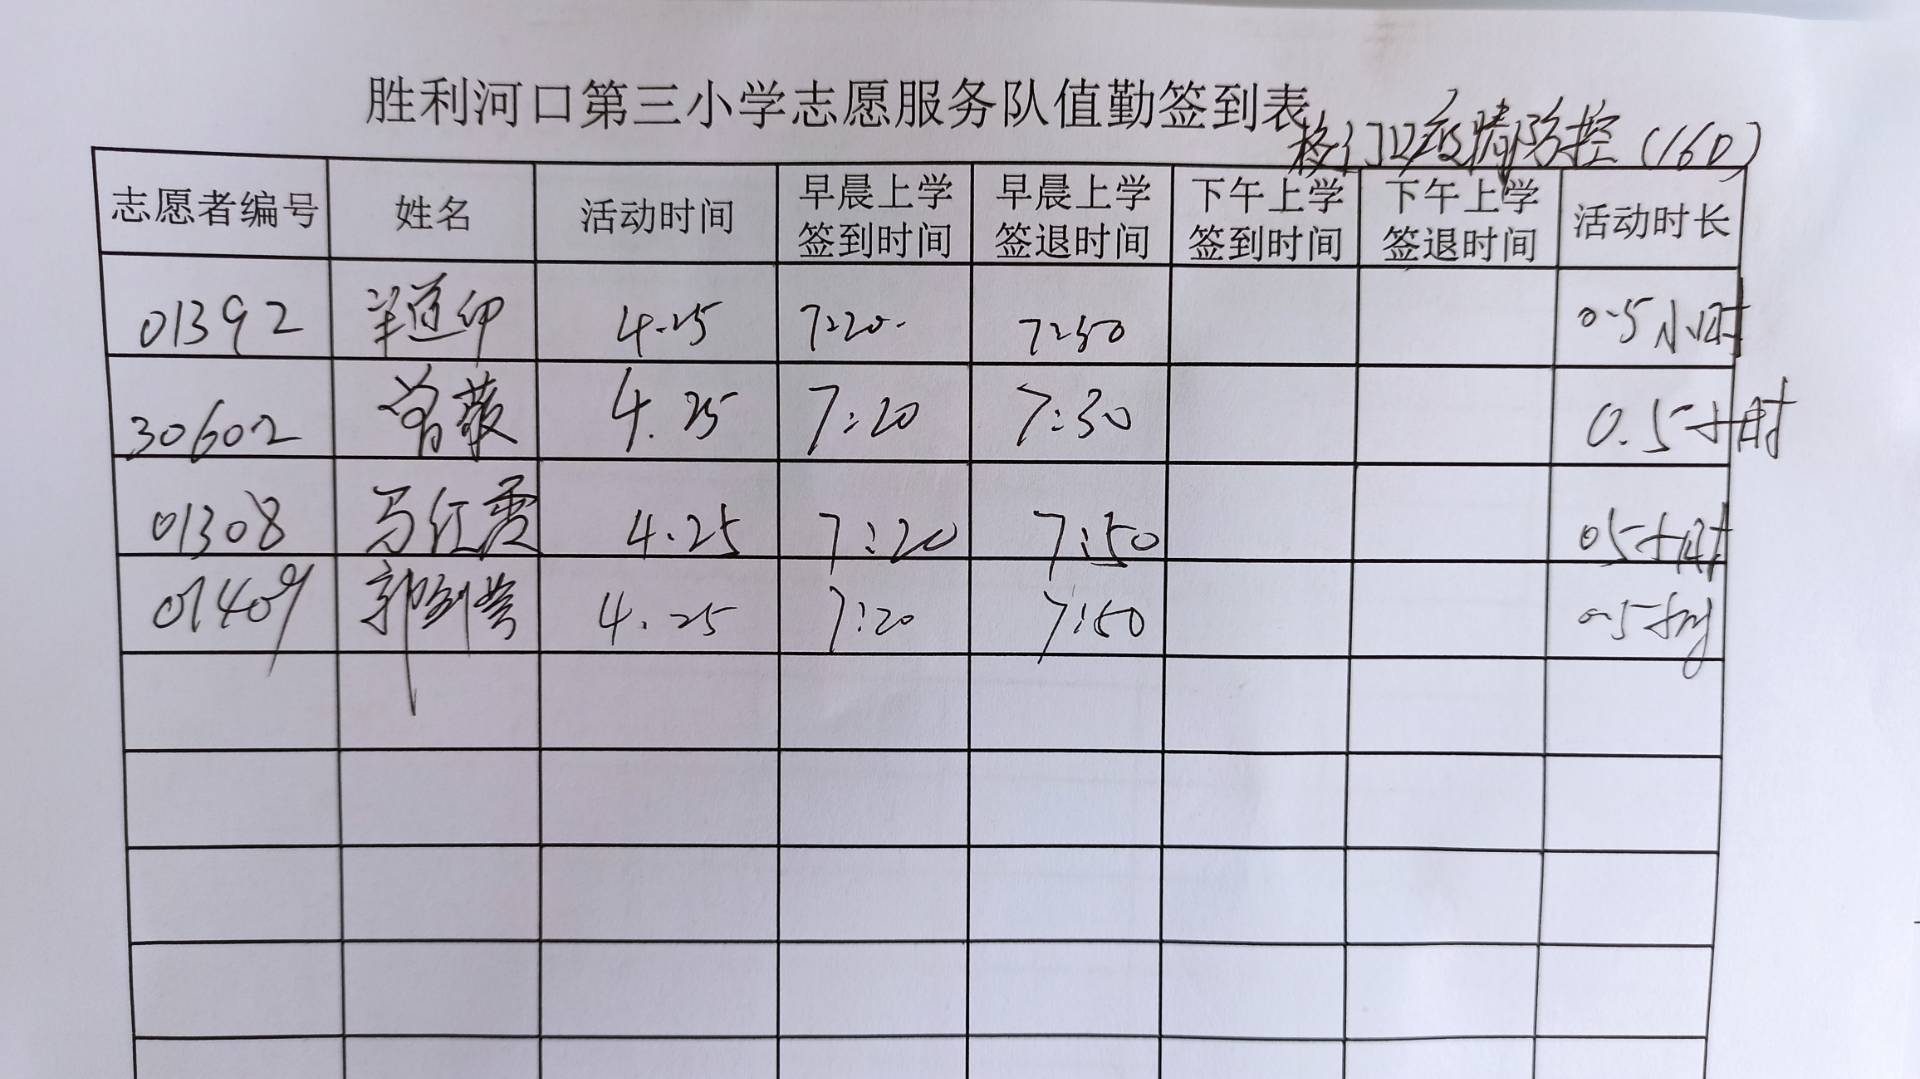 胜利河口第三小学志愿服务队值勤签到表
校门口疫情防控(160)
志愿者编号 姓名 活动时间 早晨上学签到时间 早晨上学签退时间 下午上学签到时间 下午上学签退时间 活动时长
01392 4.25 7:20 7:50 0.5小时
30602 4.25 7:20 7:30 0.5小时
01308 马红霞 4.25 7:20 7:50 05小时
01409 4.25 7:20 7:50 0.5小时